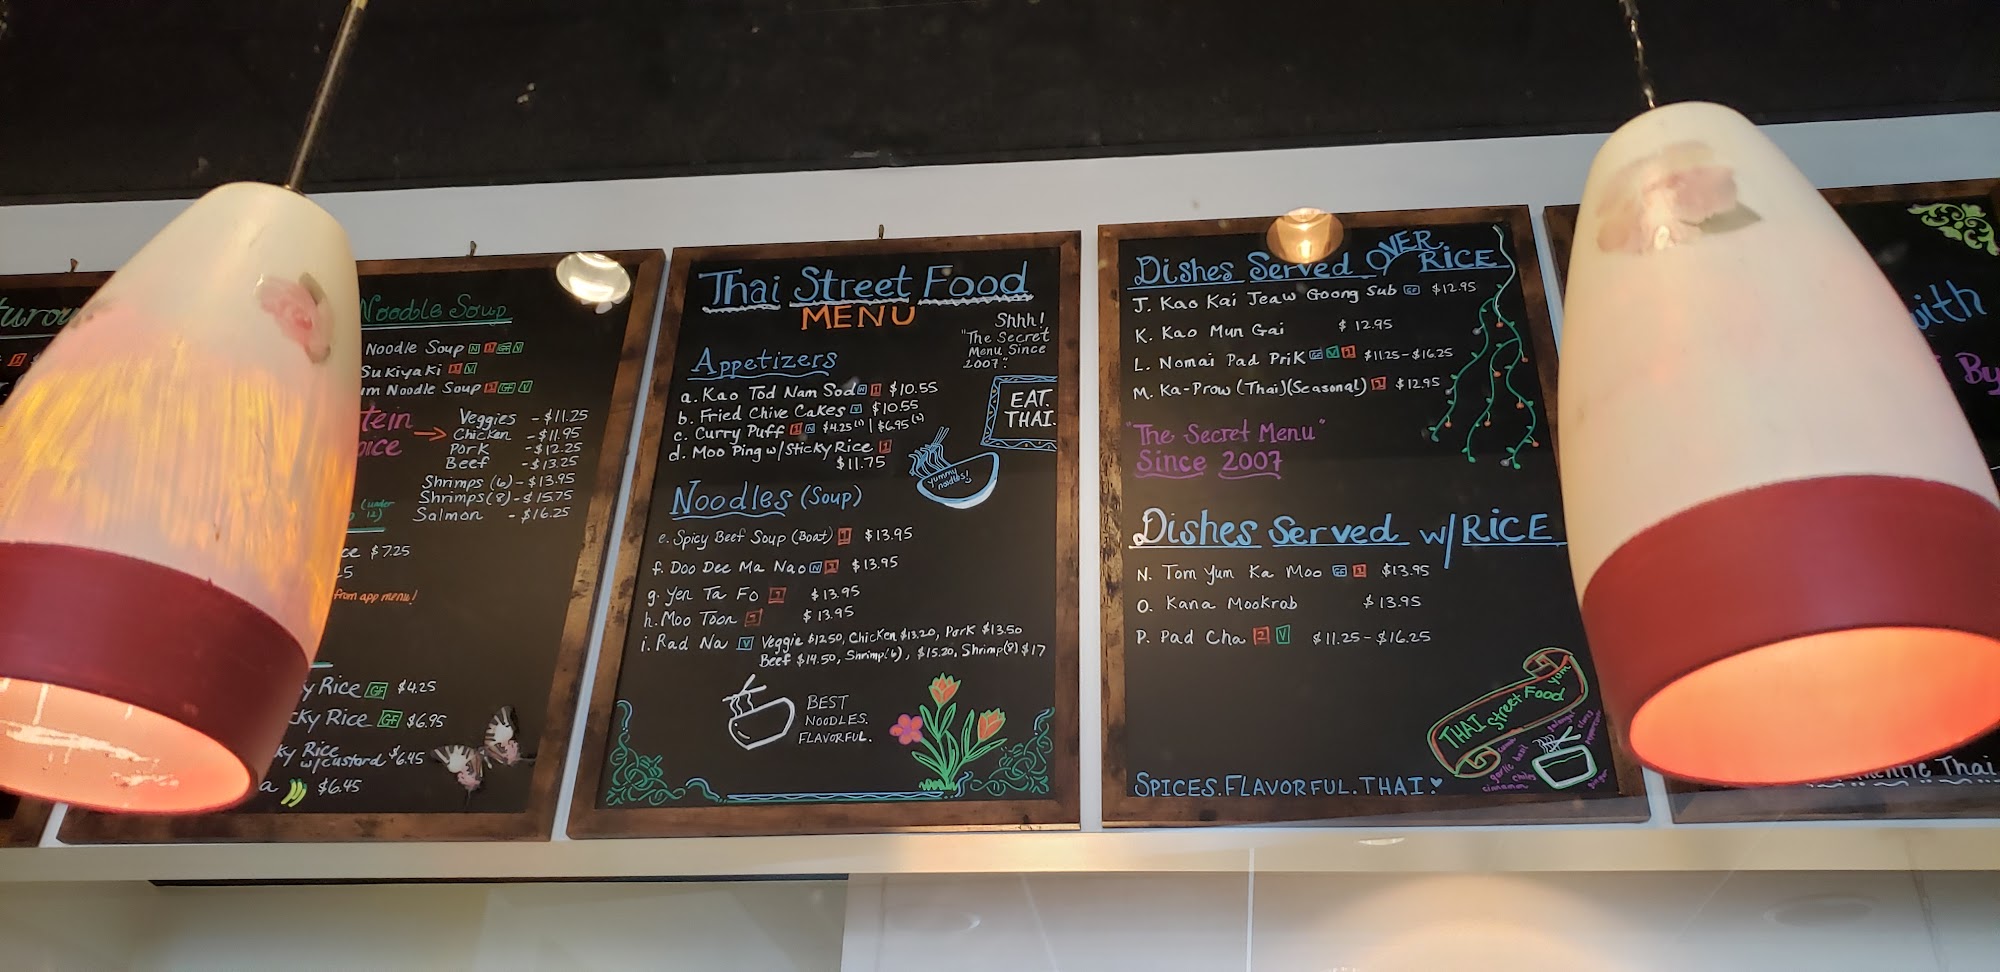 Noodle Soup
Noodle Soup N 1 GF V
Sukiyaki 1 V
um Noodle Soup 1 GF V
Veggies - $11.25
Chicken - $11.95
Pork - $12.25
Beef - $13.25
Shrimps (6) - $13.95
Shrimps (8) - $15.75
Salmon - $16.25
(under 12)
$7.25
from app menu!
y Rice GF $4.25
cky Rice GF $6.95
ky Rice w/custard $6.45
a $6.45
Thai Street Food
MENU
Shhh!
"The Secret
Menu Since
2007".
Appetizers
a. Kao Tod Nam Sod N 1 $10.55
b. Fried Chive Cakes V $10.55
c. Curry Puff 1 N $4.25(1) | $6.95(2)
d. Moo Ping w/Sticky Rice 1
$11.75
EAT.
THAI.
yummy
noodles!
Noodles (Soup)
e. Spicy Beef Soup (Boat) 1 $13.95
f. Doo Dee Ma Nao N 1 $13.95
g. Yen Ta Fo 1 $13.95
h. Moo Toon 1 $13.95
i. Rad Na V Veggie $12.50, Chicken $13.20, Pork $13.50
Beef $14.50, Shrimp(6), $15.20, Shrimp(8) $17
BEST
NOODLES.
FLAVORFUL.
Dishes Served OVER RICE
J. Kao Kai Jeaw Goong Sub GF $12.95
K. Kao Mun Gai $12.95
L. Nomai Pad Prik GF V 1 $11.25-$16.25
M. Ka-Prow (Thai)(Seasonal) 1 $12.95
"The Secret Menu"
Since 2007
Dishes Served w/RICE
N. Tom Yum Ka Moo GF 1 $13.95
O. Kana Mookrob $13.95
P. Pad Cha 2 V $11.25-$16.25
THAI Street Food yum
garlic
basil
chiles
cinnamon
SPICES.FLAVORFUL.THAI.
with
By
Thai